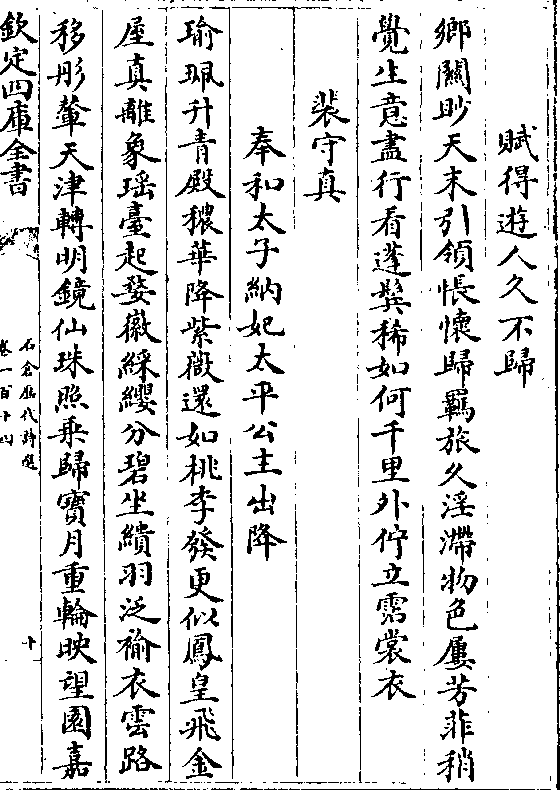 賦得遊人久不歸
鄉關眇天末引領悵懷歸羈旅久淫滯物色屢芳菲稍
覺生意盡行看蓬鬢稀如何千里外佇立霑裳衣
裴守真
奉和太子納妃太平公主出降
瑜珮升青殿穠華降紫微還如桃李發更似鳳皇飛金
屋真離象瑶臺起婺徽綵纓分碧坐繢羽泛褕衣雲路
移彤輦天津轉明鏡仙珠照乘歸寶月重輪映望園嘉
欽定四庫全書
石倉歷代詩選
卷一百十四
十